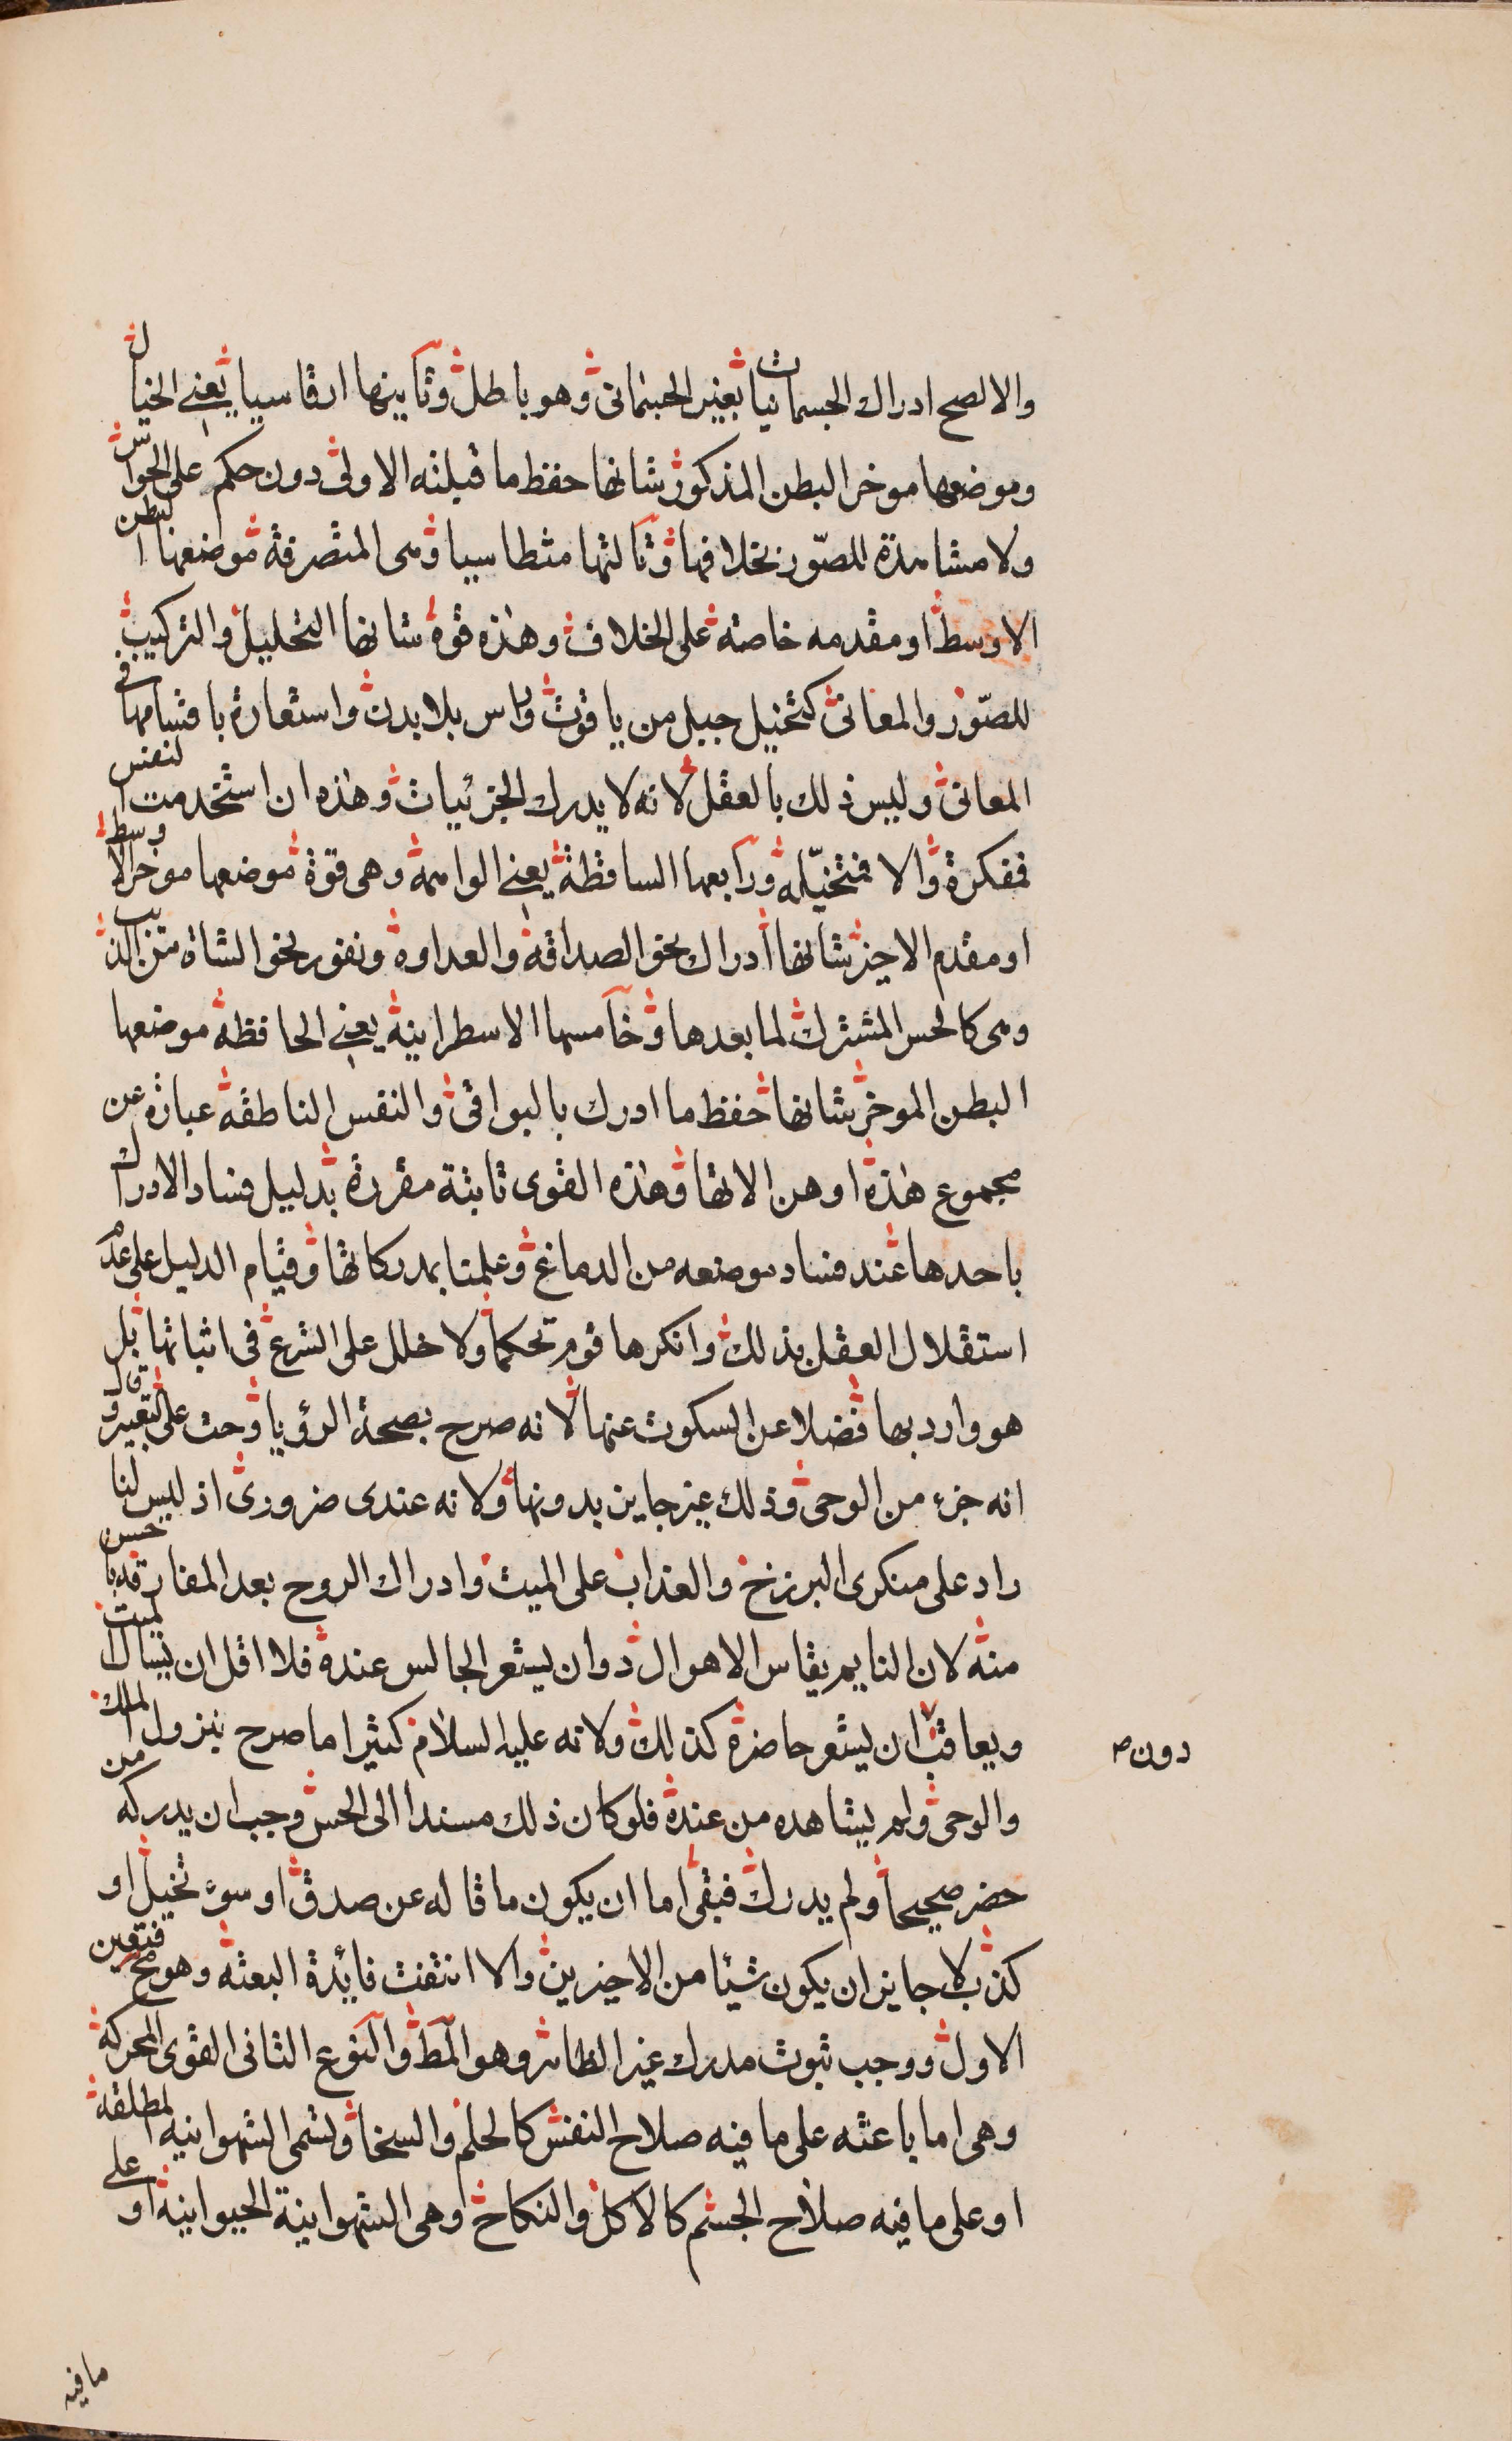 والا لصح ادراك الجسمانيات بغير الجسمانى وهو باطل وثانيها ارقاسيا يعنى الخيال
وموضعها موخر البطن المذكور شانها حفظ ما قبلته الاولى دون حكم على الحواس
ولا مشاهدة للصور بخلافها وثالثها مثطاسيا وهى المتصرفة موضعها البطن
الاوسط او مقدمه خاصته على الخلاف وهذه قوة شانها التحليل والتركيب
للصّور والمعانى كتخيل جبل من ياقوت وراس بلا بدن واستعارة باقسامها فى
المعانى وليس ذلك بالعقل لانه لا يدرك الجزئيات وهذه ان استخدمت النفس
فمفكرة والا فمتخيّلة ورابعها الساقطة يعنى الواهمة وهى قوة موضعها موخر الاوسط
او مقدم الاخير شانها ادراك نحو الصداقة والعداوة ونفور نحو الشاة من الذيب
وهى كالحس المشترك لما بعدها وخامسها الاسطرانية يعنى الحافظة موضعها
البطن الموخر شانها حفظ ما ادرك بالبواقى والنفس الناطقة عبارة عن
مجموع هذه او هن الاتها وهذه القوى ثابتة مقررة بدليل فساد الادراك
باحدها عند فساد موضعه من الدماغ وعلمنا بمدركاتها وقيام الدليل على عدم
استقلال العقل بذلك وانكرها قوم تحكما ولا خلل على الشرع فى اثباتها بل
هو وارد بها فضلا عن السكوت عنها لانه صرح بصحة الرؤيا وحث على التعبير وقال
انه جزء من الوحى وذلك غير جايز بدونها ولانه عندى ضرورى اذ ليس لنا
راد على منكرى البرزخ والعذاب على الميت وادراك الروح بعد المفارقة باحسن
منه لان النايم يقاس الاهوال دون ان يشعر الجالس عنده فلا اقل ان يسال الميت
ويعاقب ان يشعر حاضره كذلك ولانه عليه السلام كثيرا ما صرح بنزول الملك
دون
والوحى ولم يشاهده من عنده فلو كان ذلك مسندا الى الحس وجب ان يدركه من
حضر صحيحا ولم يدرك فبقى اما ان يكون ما قاله عن صدق او سوء تخيل او
كذب لا جايز ان يكون شيئا من الاخيرين والا انتفت فايدة البعثه وهو مح فتعين
الاول ووجب ثبوت مدرك غير الظاهر وهو المط والنوع الثانى القوى المحركة
وهى اما باعثه على ما فيه صلاح النفس كالحلم والسخا وتسمى الشهوانيه المطلقة
او على ما فيه صلاح الجسم كالاكل والنكاح وهى الشهوانية الحيوانية او على
ما فيه